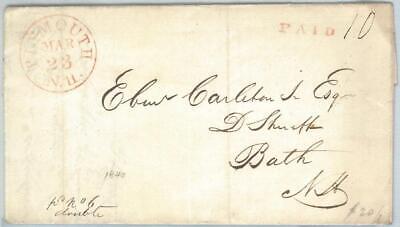 PLYMOUTH
MAR
23
N.H.
PAID
10
Ebenr Carleton Jr Esqr
D Sheriff
Bath
NH
1840
double
$20/